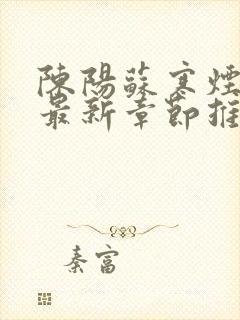 陳陽蘇寒煙
最新章節推
秦富